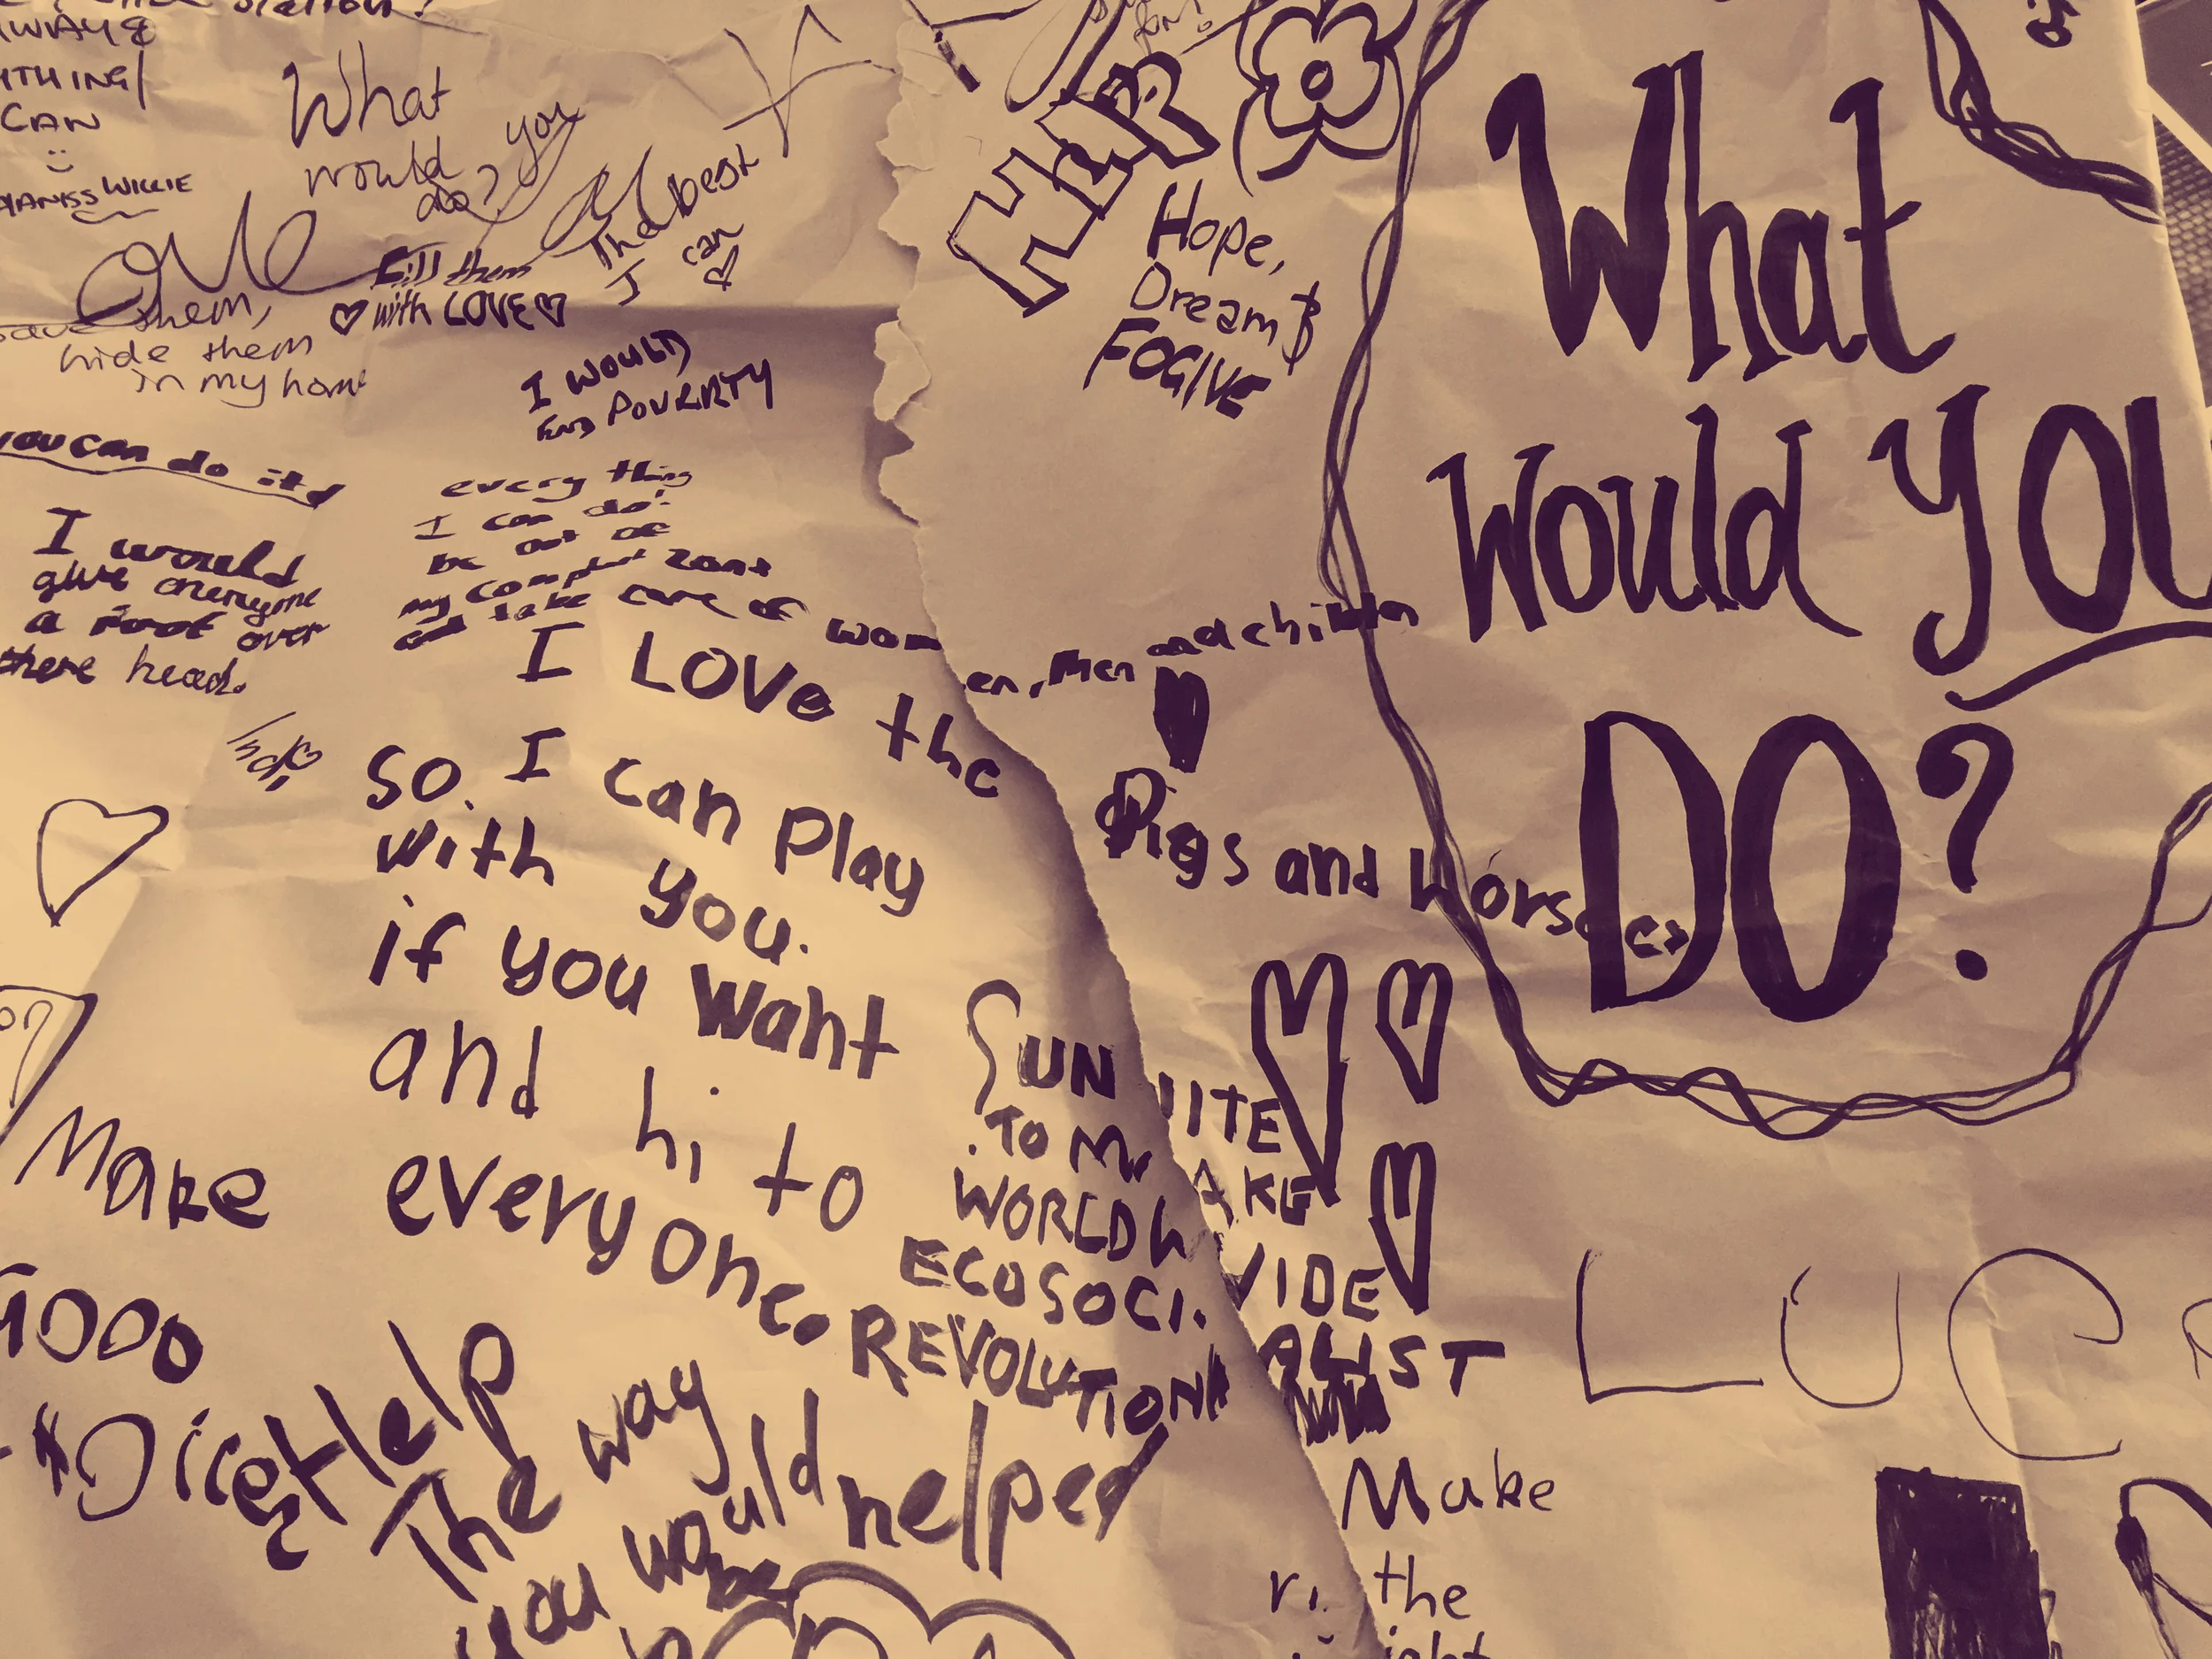 CAN
What
would you
do?
Fill them
with LOVE
The best
I can
them,
hide them
in my home
I WOULD
END POVERTY
you can do it
I would
give everyone
a roof over
there head.
every thing
I can do!
be out of
my comfort zone
and take care of women, Men and children
I LOVe the Pigs and horses
so. I can Play
with you.
if you want
and hi to
everyone.
Make
HER
Hope,
Dream$
FOGIVE
What
Would YOU
DO?
UNIITE
TO MAKE
WORLDWIDE
ECOSOCIALIST
REVOLUTION
Help
The way
you would
be
helped
LUC
Make
the